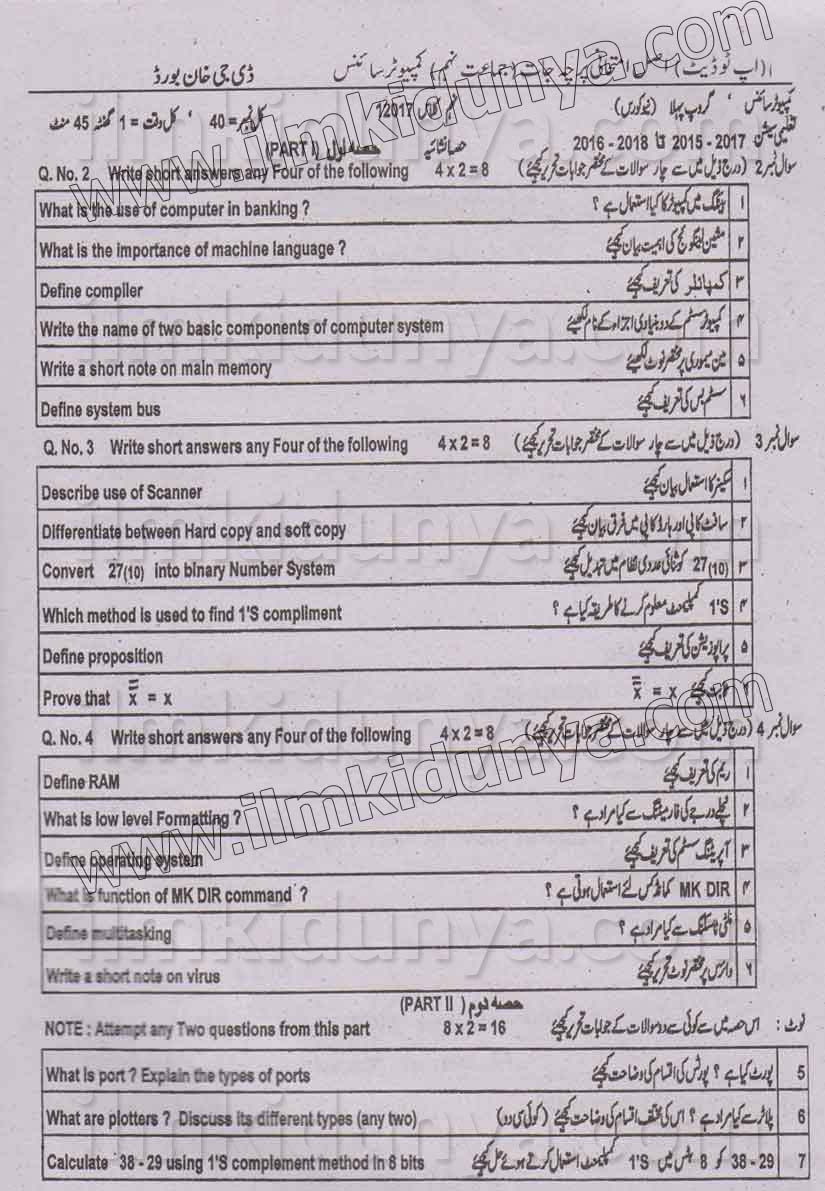 (اپ ٹو ڈیٹ) اصل امتحانی پرچہ جات (جماعت نہم) کمپیوٹر سائنس ڈی جی خان بورڈ
کمپیوٹر سائنس گروپ پہلا (نیو کورس) 12017 کل نمبر = 40 ، کل وقت = 1 گھنٹہ 45 منٹ
تعلیمی سیشن 2015 - 2017 تا 2016 - 2018 حصہ انشائیہ حصہ اول (PART I)
Q. No. 2 Write short answers any Four of the following 4 x 2 = 8 سوال نمبر 2 (درج ذیل میں سے چار سوالات کے مختصر جوابات تحریر کیجئے)
What is the use of computer in banking ? بینکنگ میں کمپیوٹر کا کیا استعمال ہے ؟ ۱
What is the importance of machine language ? مشین لینگوئج کی اہمیت بیان کیجئے ۲
Define compiler کمپائلر کی تعریف کیجئے ۳
Write the name of two basic components of computer system کمپیوٹر سسٹم کے دو بنیادی اجزاء کے نام لکھیئے ۴
Write a short note on main memory مین میموری پر مختصر نوٹ لکھیئے ۵
Define system bus سسٹم بس کی تعریف کیجئے ۶
Q. No. 3 Write short answers any Four of the following 4 x 2 = 8 سوال نمبر 3 (درج ذیل میں سے چار سوالات کے مختصر جوابات تحریر کیجئے)
Describe use of Scanner سکینر کا استعمال بیان کیجئے ۱
Differentiate between Hard copy and soft copy سافٹ کاپی اور ہارڈ کاپی میں فرق بیان کیجئے ۲
Convert 27(10) into binary Number System 27(10) کو ثنائی عددی نظام میں تبدیل کیجئے ۳
Which method is used to find 1'S compliment 1'S کمپلیمنٹ معلوم کرنے کا طریقہ کیا ہے ؟ ۴
Define proposition پراپوزیشن کی تعریف کیجئے ۵
Prove that x̿ = x ثابت کیجئے x̿ = x ۶
Q. No. 4 Write short answers any Four of the following 4 x 2 = 8 سوال نمبر 4 (درج ذیل میں سے چار سوالات کے مختصر جوابات تحریر کیجئے)
Define RAM ریم کی تعریف کیجئے ۱
What is low level Formatting ? نچلے درجے کی فارمیٹنگ سے کیا مراد ہے ؟ ۲
Define operating system آپریٹنگ سسٹم کی تعریف کیجئے ۳
What is function of MK DIR command ? MK DIR کمانڈ کس لئے استعمال ہوتی ہے ؟ ۴
Define multitasking ملٹی ٹاسکنگ سے کیا مراد ہے ؟ ۵
Write a short note on virus وائرس پر مختصر نوٹ تحریر کیجئے ۶
حصہ دوم (PART II)
NOTE : Attempt any Two questions from this part 8 x 2 = 16 نوٹ : اس حصہ میں سے کوئی سے دو سوالات کے جوابات تحریر کیجئے
What is port ? Explain the types of ports پورٹ کیا ہے ؟ پورٹس کی اقسام کی وضاحت کیجئے 5
What are plotters ? Discuss its different types (any two) پلاٹر سے کیا مراد ہے ؟ اس کی مختلف اقسام کی وضاحت کیجئے (کوئی سی دو) 6
Calculate 38 - 29 using 1'S complement method in 8 bits 38 - 29 کو 8 بٹس میں 1'S کمپلیمنٹ استعمال کرتے ہوئے حل کیجئے 7
www.ilmkidunya.com
www.ilmkidunya.com
ilmkidunya.com
ilmkidunya.com
ilmkidunya.com
ilmkidunya.com
ilmkidunya.com